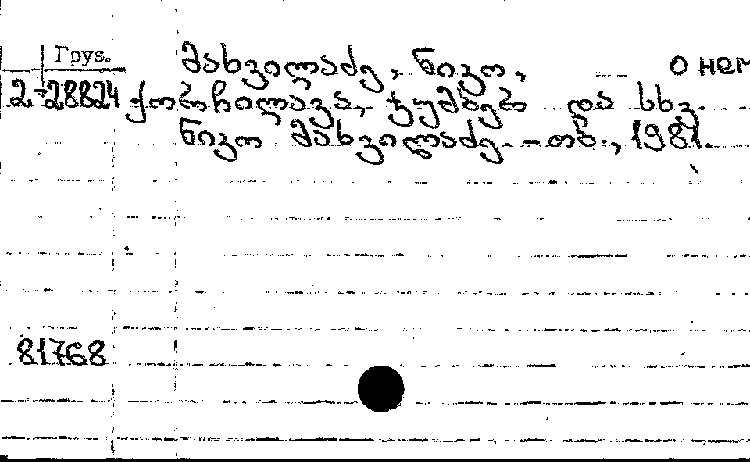 Груз.
მახვილაძე, ნიკო, о нем
2-28824 ქობრჩილავა, ჯუმბერ და სხვ.
ნიკო მახვილაძე. - თბ., 1981.
81768